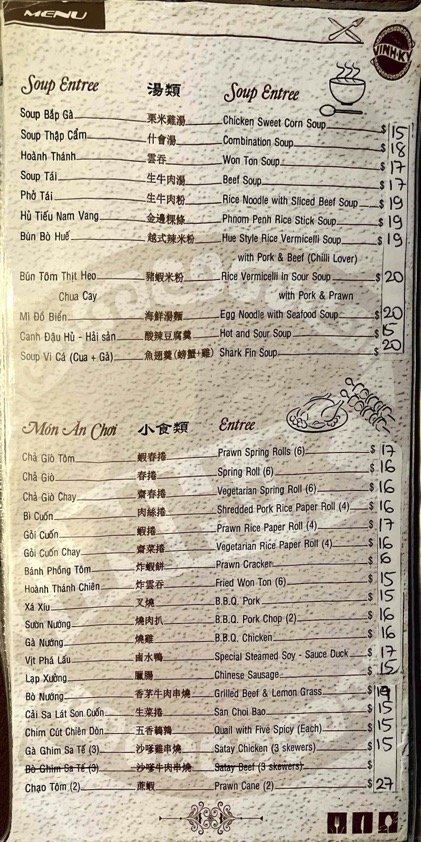 MENU
Soup Entree 湯類 Soup Entree
Soup Bắp Gà 粟米雞湯 Chicken Sweet Corn Soup $ 15
Soup Thập Cẩm 什會湯 Combination Soup $ 18
Hoành Thánh 雲吞 Won Ton Soup $ 17
Soup Tái 生牛肉湯 Beef Soup $ 17
Phở Tái 生牛肉粉 Rice Noodle with Sliced Beef Soup $ 19
Hủ Tiếu Nam Vang 金邊粿條 Phnom Penh Rice Stick Soup $ 19
Bún Bò Huế 越式辣米粉 Hue Style Rice Vermicelli Soup $ 19
with Pork & Beef (Chilli Lover)
Bún Tôm Thịt Heo 豬蝦米粉 Rice Vermicelli in Sour Soup $ 20
Chua Cay with Pork & Prawn
Mì Đồ Biển 海鮮湯麵 Egg Noodle with Seafood Soup $ 20
Canh Đậu Hủ - Hải sản 酸辣豆腐羹 Hot and Sour Soup $ 15
Soup Vi Cá (Cua + Gà) 魚翅羹(螃蟹+雞) Shark Fin Soup $ 20
Món Ăn Chơi 小食類 Entree
Chả Giò Tôm 蝦春捲 Prawn Spring Rolls (6) $ 17
Chả Giò 春捲 Spring Roll (6) $ 16
Chả Giò Chay 齋春捲 Vegetarian Spring Roll (6) $ 16
Bì Cuốn 肉絲捲 Shredded Pork Rice Paper Roll (4) $ 16
Gỏi Cuốn 蝦捲 Prawn Rice Paper Roll (4) $ 17
Gỏi Cuốn Chay 齋菜捲 Vegetarian Rice Paper Roll (4) $ 16
Bánh Phồng Tôm 炸蝦餅 Prawn Cracker $ 6
Hoành Thánh Chiên 炸雲吞 Fried Won Ton (6) $ 15
Xá Xíu 叉燒 B.B.Q. Pork $ 15
Sườn Nướng 燒肉扒 B.B.Q. Pork Chop (2) $ 16
Gà Nướng 燒雞 B.B.Q. Chicken $ 16
Vịt Phá Lấu 鹵水鴨 Special Steamed Soy - Sauce Duck $ 17
Lạp Xưởng 臘腸 Chinese Sausage $ 15
Bò Nướng 香茅牛肉串燒 Grilled Beef & Lemon Grass $ 19
Cải Sa Lát Son Cuốn 生菜捲 San Choi Bao $ 15
Chim Cút Chiên Dòn 五香鵪鶉 Quail with Five Spicy (Each) $ 15
Gà Ghim Sa Tế (3) 沙嗲雞串燒 Satay Chicken (3 skewers) $ 15
Bò Ghim Sa Tế (3) 沙嗲牛肉串燒 Satay Beef (3 skewers) $
Chạo Tôm (2) 蔗蝦 Prawn Cane (2) $ 27